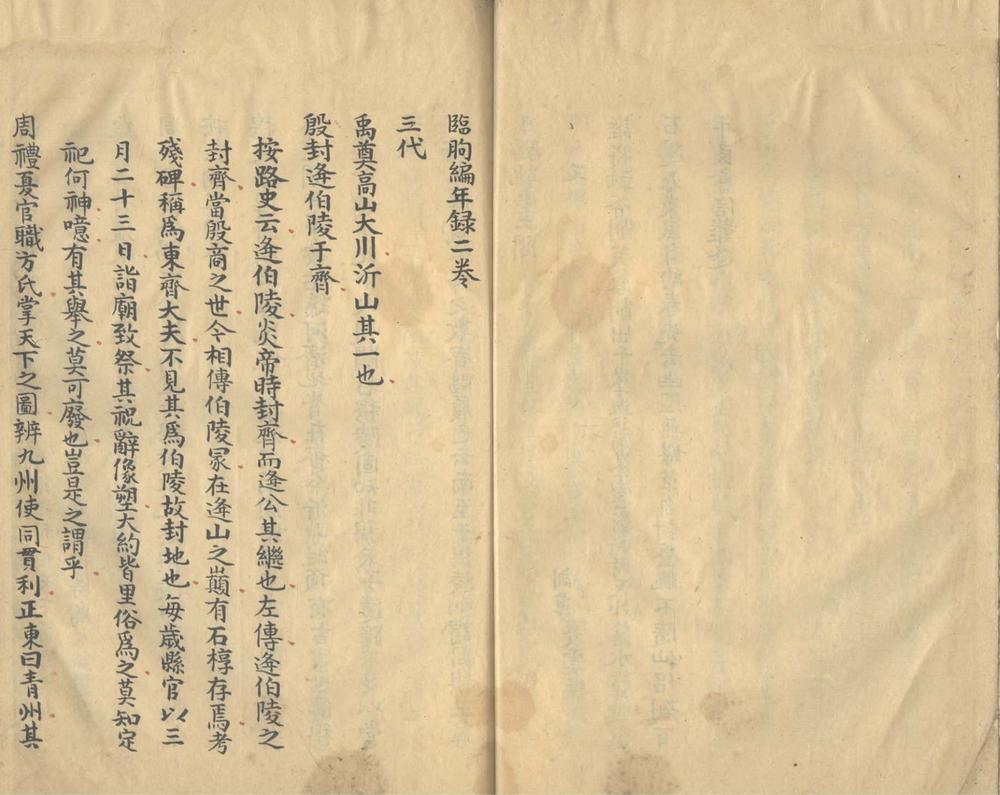 臨朐編年録二卷
三代
禹奠高山大川沂山其一也
殷封逄伯陵于齊
按路史云逄伯陵炎帝時封齊而逄公其繼也左傳逄伯陵之
封齊當殷商之世今相傳伯陵冢在逄山之巔有石椁存焉考
殘碑稱爲東齊大夫不見其爲伯陵故封地也每歲縣官以三
月二十三日詣廟致祭其祝辭像塑大約皆里俗爲之莫知定
祀何神噫有其舉之莫可廢也豈是之謂乎
周禮夏官職方氏掌天下之圖辨九州使同貫利正東曰青州其